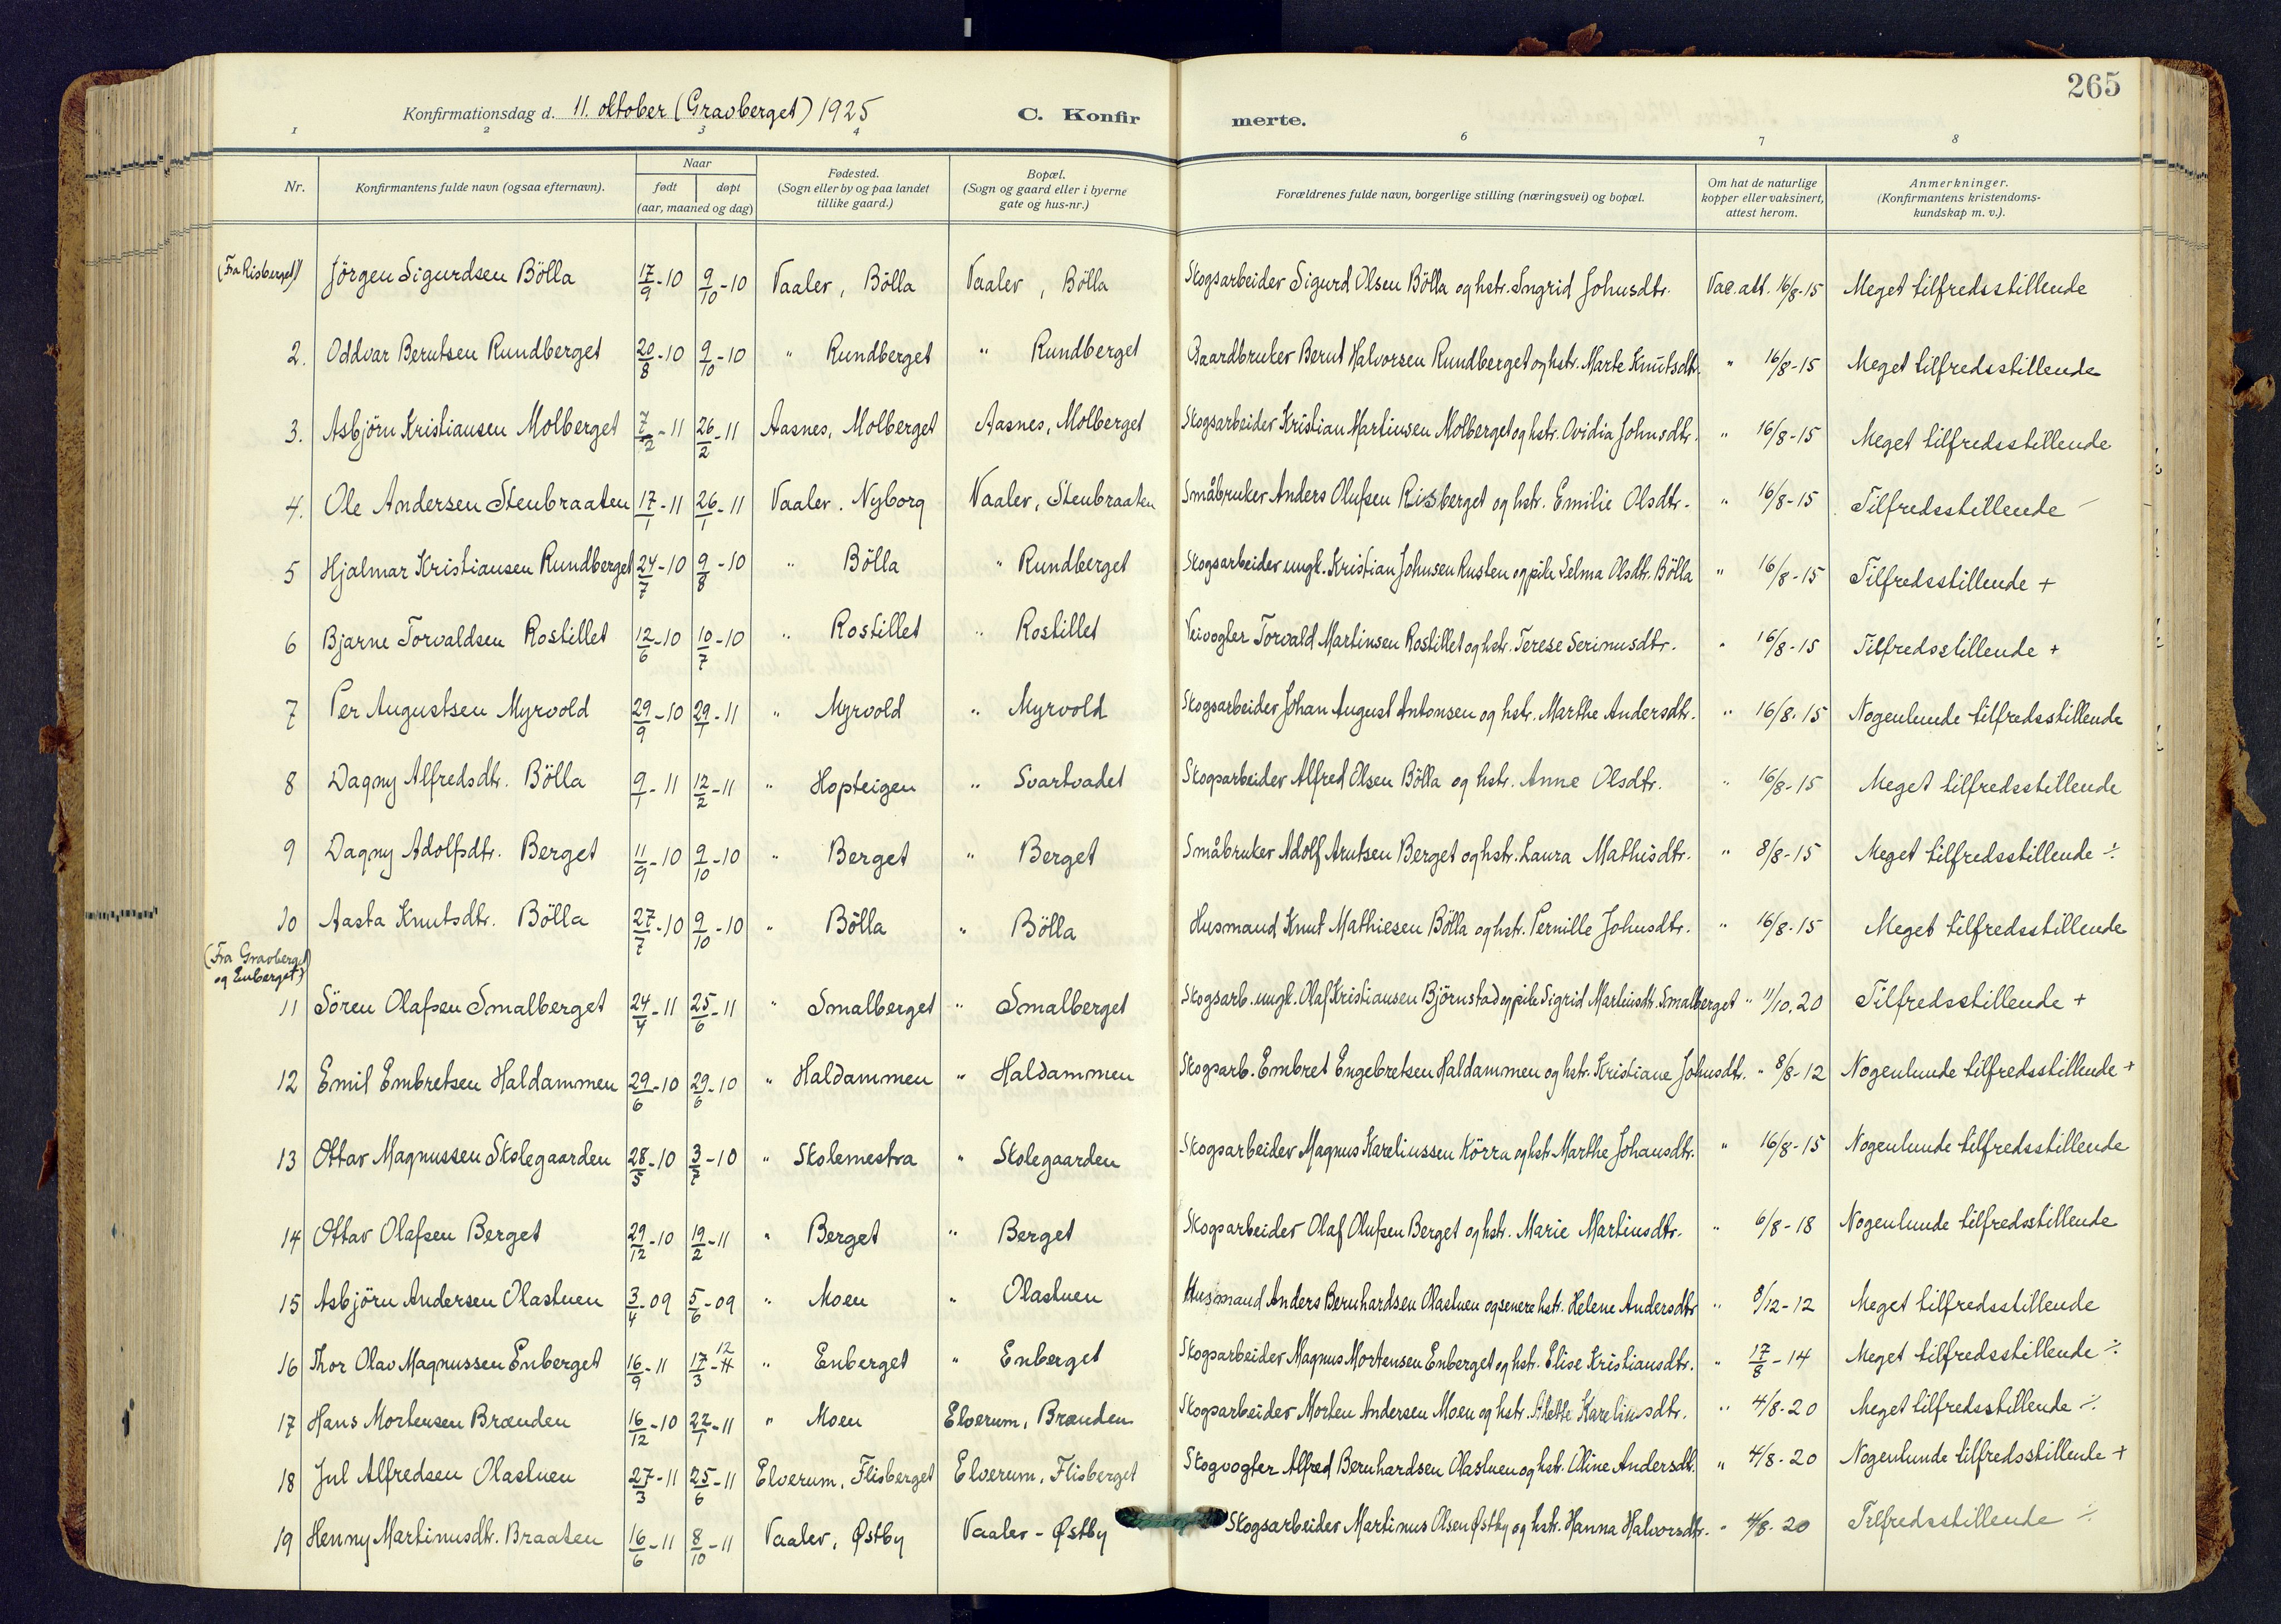 265
Konfirmationsdag d. 11. oktober (Gravberget) 1925 C. Konfir merte.
1 2 3 4 6 7 8
Nr. Konfirmantens fulde navn (ogsaa efternavn). Naar født døpt (aar, maaned og dag) Fødested. (Sogn eller by og paa landet tillike gaard.) Bopæl. (Sogn og gaard eller i byerne gate og hus-nr.) Forældrenes fulde navn, borgerlige stilling (næringsvei) og bopæl. Om hat de naturlige kopper eller vaksinert, attest herom. Anmerkninger. (Konfirmantens kristendoms-kundskap m. v.).
(Fra Risberget) Jörgen Sigurdsen Bölla 17/9-10 9/10-10 Vaaler, Bölla Vaaler, Bölla Skogsarbeider Sigurd Olsen Bölla og hstr. Ingrid Johnsdtr. Vac. att. 16/8-15 Meget tilfredsstillende
2. Oddvar Berntsen Rundberget 20/8-10 9/10-10 " Rundberget " Rundberget Gaardbruker Bernt Halvorsen Rundberget og hstr. Marte Knutsdtr. " 16/8-15 Meget tilfredsstillende
3. Asbjörn Kristiansen Molberget 7/2-11 26/2-11 Aasnes, Molberget Aasnes, Molberget Skogsarbeider Kristian Martinsen Molberget og hstr. Ovidia Johnsdtr. " 16/8-15 Meget tilfredsstillende
4. Ole Andersen Stenbraaten 17/1-11 26/1-11 Vaaler. Nyborg Vaaler, Stenbraaten Småbruker Anders Olufsen Risberget og hstr. Emilie Olsdtr. " 16/8-15 Tilfredsstillende
5 Hjalmar Kristiansen Rundberget 24/7-10 9/8-10 " Bölla " Rundberget Skogsarbeider ungk. Kristian Johnsen Rusten og pike Selma Olsdtr. Bölla " 16/8-15 Tilfredsstillende +
6 Bjarne Torvaldsen Rostillet 12/6-10 10/7-10 " Rostillet " Rostillet Veivogter Torvald Martinsen Rostillet og hstr. Terese Serinusdtr. " 16/8-15 Tilfredsstillende +
7 Per Augustsen Myrvold 29/9-10 29/1-11 " Myrvold " Myrvold Skogsarbeider Johan August Antonsen og hstr. Marthe Andersdtr. " 16/8-15 Nogenlunde tilfredsstillende
8 Dagny Alfredsdtr. Bölla 9/1-11 12/2-11 " Hopteigen " Svartvadet Skogsarbeider Alfred Olsen Bölla og hstr. Anne Olsdtr. " 16/8-15 Meget tilfredsstillende
9 Dagny Adolfsdtr. Berget 11/9-10 9/10-10 " Berget " Berget Småbruker Adolf Arntsen Berget og hstr. Laura Mathisdtr. " 8/8-15 Meget tilfredsstillende ÷
10 Aasta Knutsdtr. Bölla 27/7-10 9/10-10 " Bölla " Bölla Husmand Knut Mathiesen Bölla og hstr. Pernille Johnsdtr. " 16/8-15 Meget tilfredsstillende
(Fra Gravberget og Enberget)
11 Sören Olafsen Smalberget 24/4-11 25/6-11 " Smalberget " Smalberget Skogsarb. ungk. Olaf Kristiansen Björnstad og pike Sigrid Martinsdtr. Smalberget " 11/10.20 Tilfredsstillende +
12 Emil Embretsen Haldammen 29/6-10 29/6-10 " Haldammen " Haldammen Skogsarb. Embret Engebretsen Haldammen og hstr. Kristiane Johnsdtr. " 8/8-12 Nogenlunde tilfredsstillende +
13 Ottar Magnussen Skolegaarden 28/5-10 3/7-10 " Skolemestra " Skolegaarden Skogsarbeider Magnus Kareliussen Körra og hstr. Marthe Johansdtr. " 16/8-15 Nogenlunde tilfredsstillende
14 Ottar Olafsen Berget 29/12-10 19/2-11 " Berget " Berget Skogsarbeider Olaf Olufsen Berget og hstr. Marie Martinsdtr. " 6/8-18 Nogenlunde tilfredsstillende
15 Asbjörn Andersen Olastuen 3/4-09 5/6-09 " Moen " Olastuen Husmand Anders Bernhardsen Olastuen og senere hstr. Helene Andersdtr " 8/12-12 Meget tilfredsstillende
16 Thor Olav Magnussen Enberget 16/9-11 17/3-11 12 " Enberget " Enberget Skogsarbeider Magnus Mortensen Enberget og hstr. Elise Kristiansdtr. " 17/8-14 Meget tilfredsstillende ÷
17 Hans Mortensen Brænden 16/12-10 22/1-11 " Moen Elverum, Brænden Skogsarbeider Morten Andersen Moen og hstr. Alette Kareliusdtr. " 4/8-20 Meget tilfredsstillende ÷
18 Jul Alfredsen Olastuen 27/3-11 25/6-11 Elverum, Flisberget Elverum, Flisberget Skogvogter Alfred Bernhardsen Olastuen og hstr. Oline Andersdt. " 4/8-20 Nogenlunde tilfredsstillende +
19 Henny Martinusdtr. Braaten 16/6-11 8/10-11 Vaaler, Østby Vaaler - Østby Skogsarbeider Martinus Olsen Østby og hstr. Hanna Halvorsdtr. " 4/8-20 Tilfredsstillende ÷